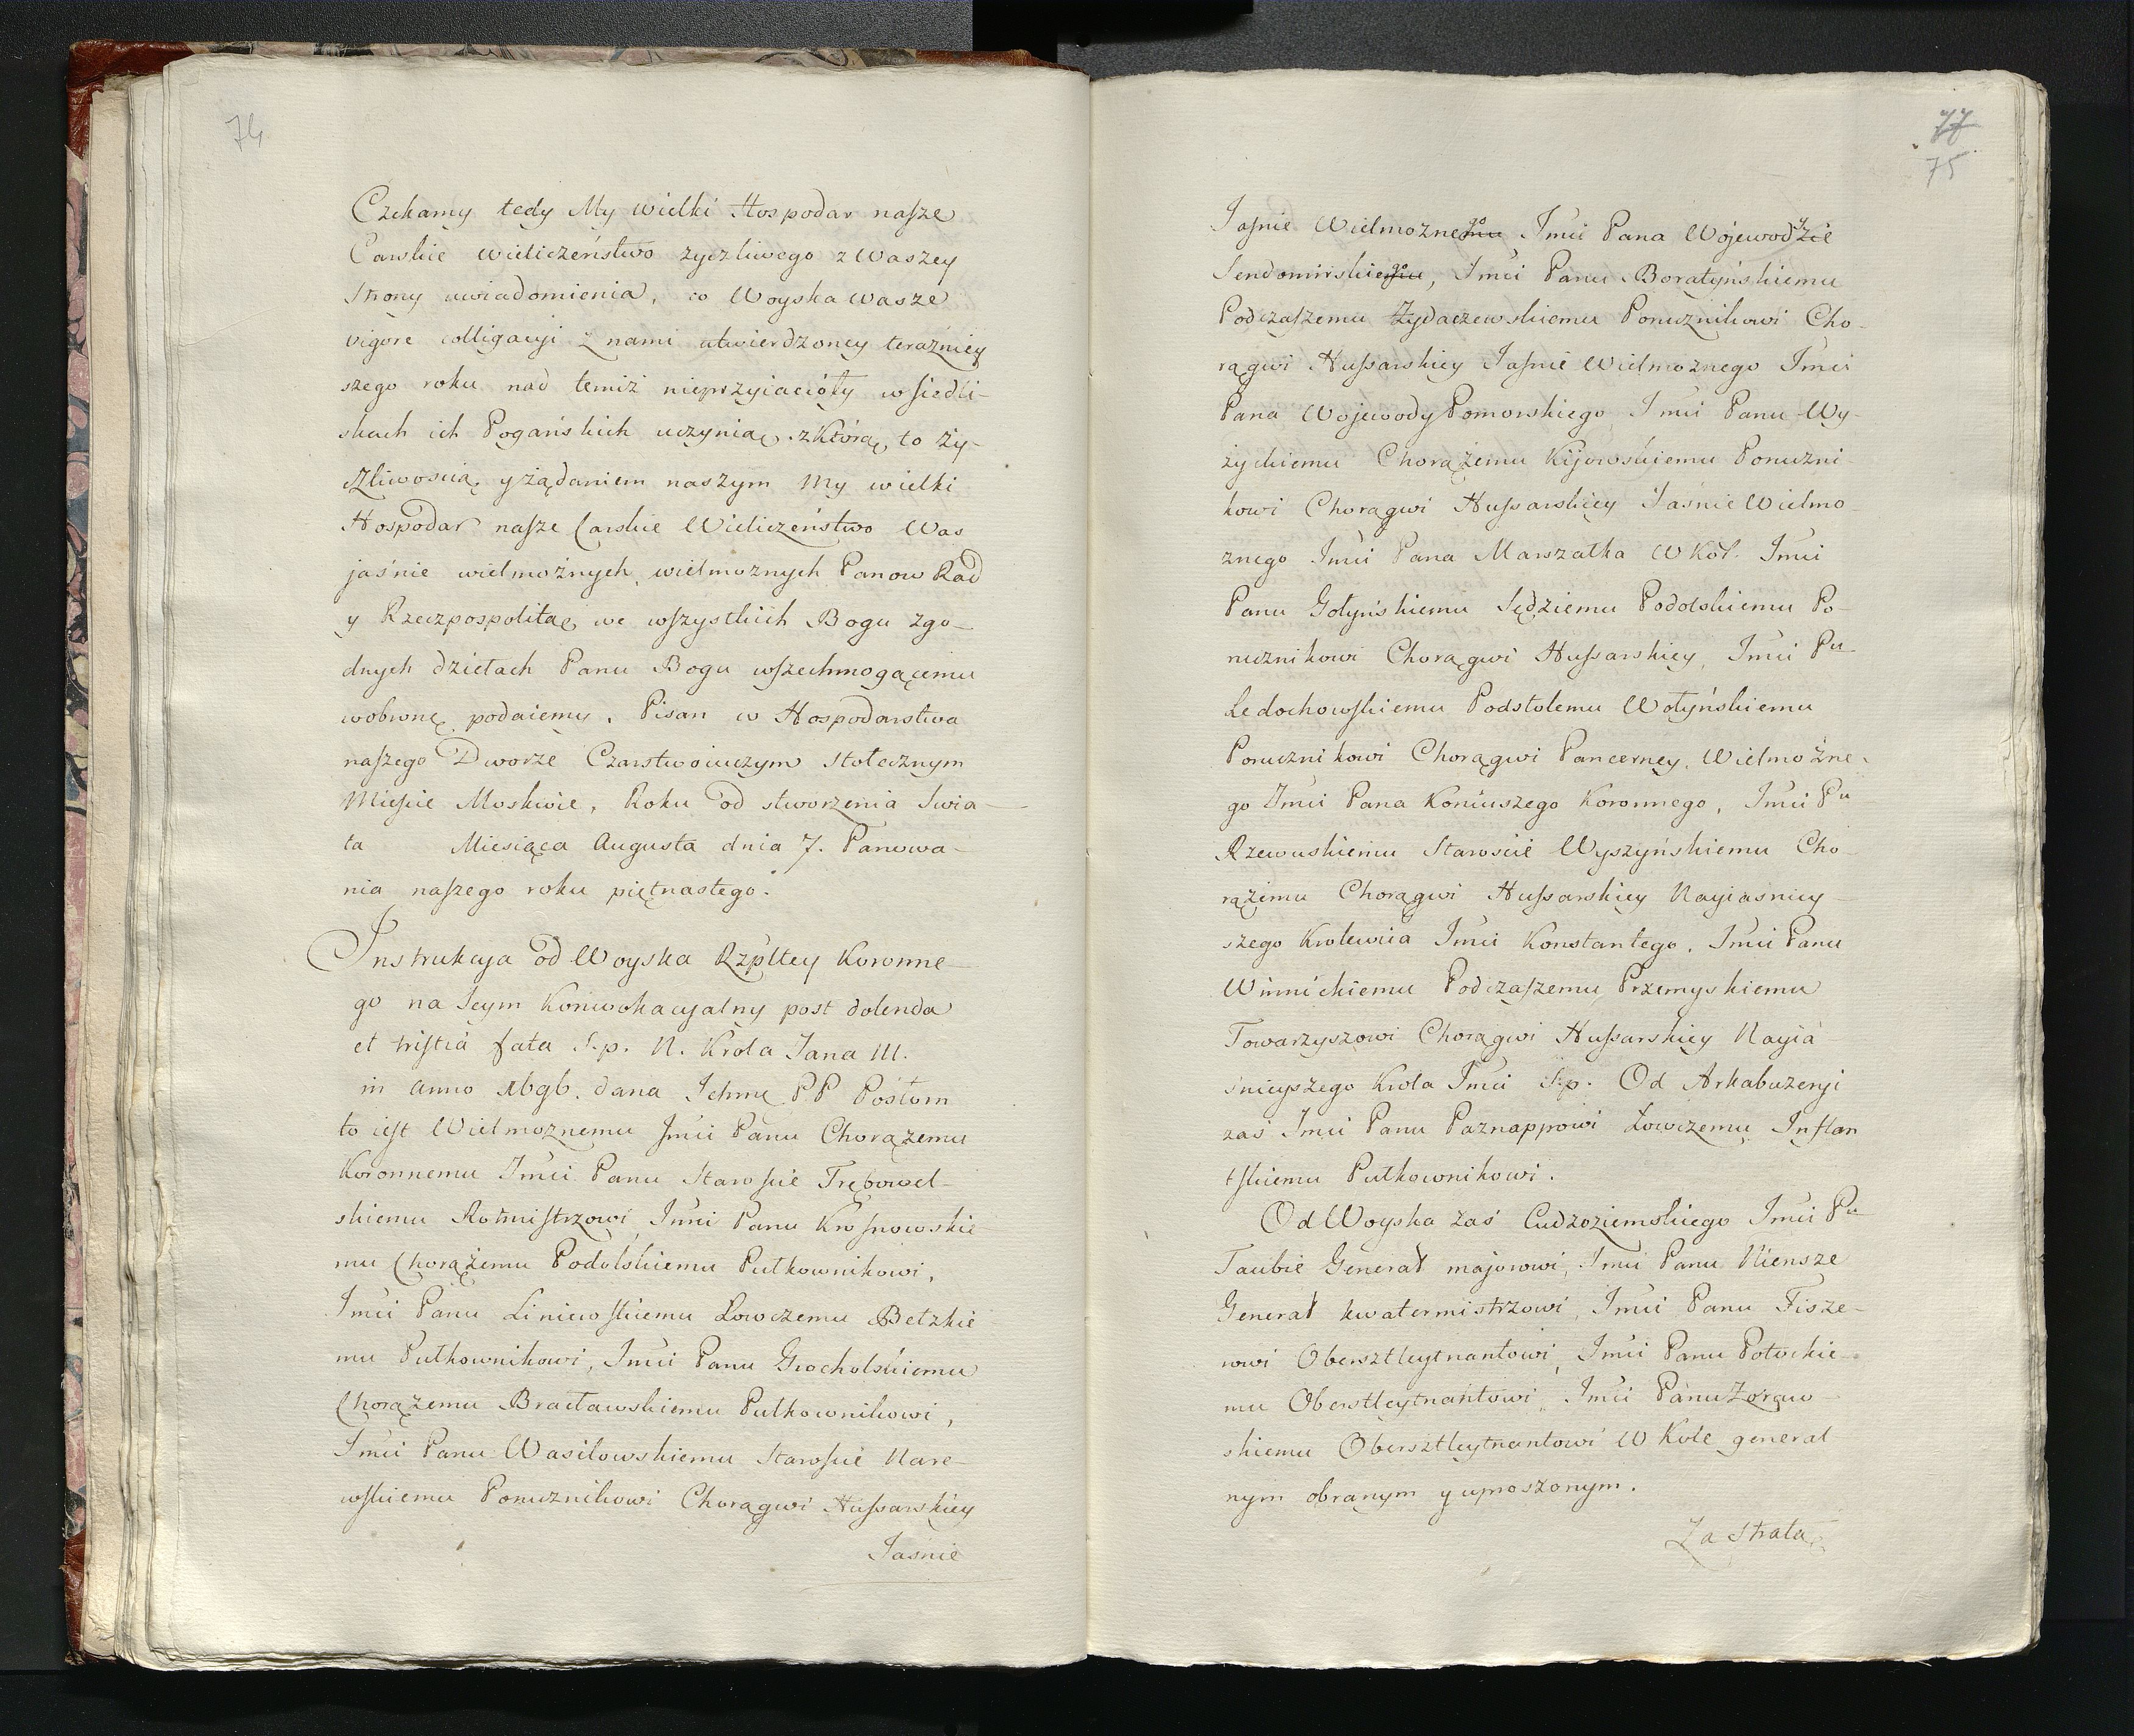 74
Czekamy tedy My wielki Hospodar nasze
Carskie wieliczeństwo zyczliwego z Waszey
strony uwiadomienia, co Woyska Wasze
vigore colligacyi z nami utwierdzoney teraźniey
szego roku nad temiż nieprzyiacioły w siedli-
skach ich Pogańskich uczynią. z którą to ży-
czliwoscią y żądaniem naszym My wielki
Hospodar nasze Carskie Wieliczeństwo Was
jaśnie wielmożnych, wielmożnych Panow Rad
y Rzeczpospolitą we wszystkich Bogu zgo-
dnych dziełach Panu Bogu wszechmogącemu
wobronę podaiemy. Pisan w Hospodarstwa
naszego Dworze Czarstwoiuczym Stołecznym
Mieście Moskwie, Roku od stworzenia Swia-
ta Miesiąca Augusta dnia 7. Panowa-
nia naszego roku piętnastego.
Instrukcya od Woyska Rzpltey Koronne-
go na Seym Konwokacyalny post dolenda
et tristia fata S.p. N. Krola Jana III.
in anno 1696. dana Ichmć PP Posłom
to iest Wielmoznemu Jmci Panu Chorązemu
Koronnemu Jmci Panu Staroscie Trębowel-
skiemu Rotmistrzowi, Jmci Panu Krosnowskie-
mu Chorążemu Podolskiemu Pułkownikowi,
Jmci Panu Liniewskiemu Łowczemu Bełzkie-
mu Pułkownikowi, Jmci Panu Grocholskiemu
Chorążemu Bracławskiemu Pułkownikowi,
Jmci Panu Wasilowskiemu Staroście Nare-
wskiemu Porucznikowi Chorągwi Hussarskiey
Jasnie
77
75
Jasnie Wielmożnego Jmci Pana Wojewody
Sendomirskiego, Jmci Panu Boratyńskiemu
Podczaszemu Żydaczewskiemu Porucznikowi Cho-
rągwi Hussarskiey Jasnie Wielmożnego Jmci
Pana Wojewody Pomorskiego Jmci Panu Wy-
życkiemu Chorążemu Kijowskiemu Poruczni-
kowi Chorągwi Hussarskiey Jaśnie Wielmo-
znego Jmci Pana Marszałka W Kor. Jmci
Panu Gołyńskiemu Sędziemu Podolskiemu Po-
rucznikowi Chorągwi Hussarskiey, Jmci Pu
Ledochowskiemu Podstolemu Wołyńskiemu
Porucznikowi Chorągwi Pancerney, Wielmożne-
go Jmci Pana Koniuszego Koronnego, Jmci Pu
Rzewuskiemu Staroscie Wyszyńskiemu Cho-
rążemu Chorągwi Hussarskiey Nayiasniey-
szego Krolewica Jmci Konstantego, Jmci Panu
Winnickiemu Podczaszemu Przemyskiemu
Towarzyszowi Chorągwi Hussarskiey Nayia-
śnieyszego Krola Jmci S.p. Od Arkabuzeryi
zaś Jmci Panu Paznappowi Łowczemu Inflan
tskiemu Pułkownikowi.
Od Woyska zaś Cudzoziemskiego Jmci Pu
Taubie Generał majorowi, Jmci Panu Niensze
Generał kwatermistrzowi, Jmci Panu Fisze-
rowi Obersztleytnantowi, Jmci Panu Potockie-
mu Oberstleytnantowi, Jmci Panu Zoraw-
skiemu Obersztleytnantowi w Kole general-
nym obranym y uproszonym.
Za stratę